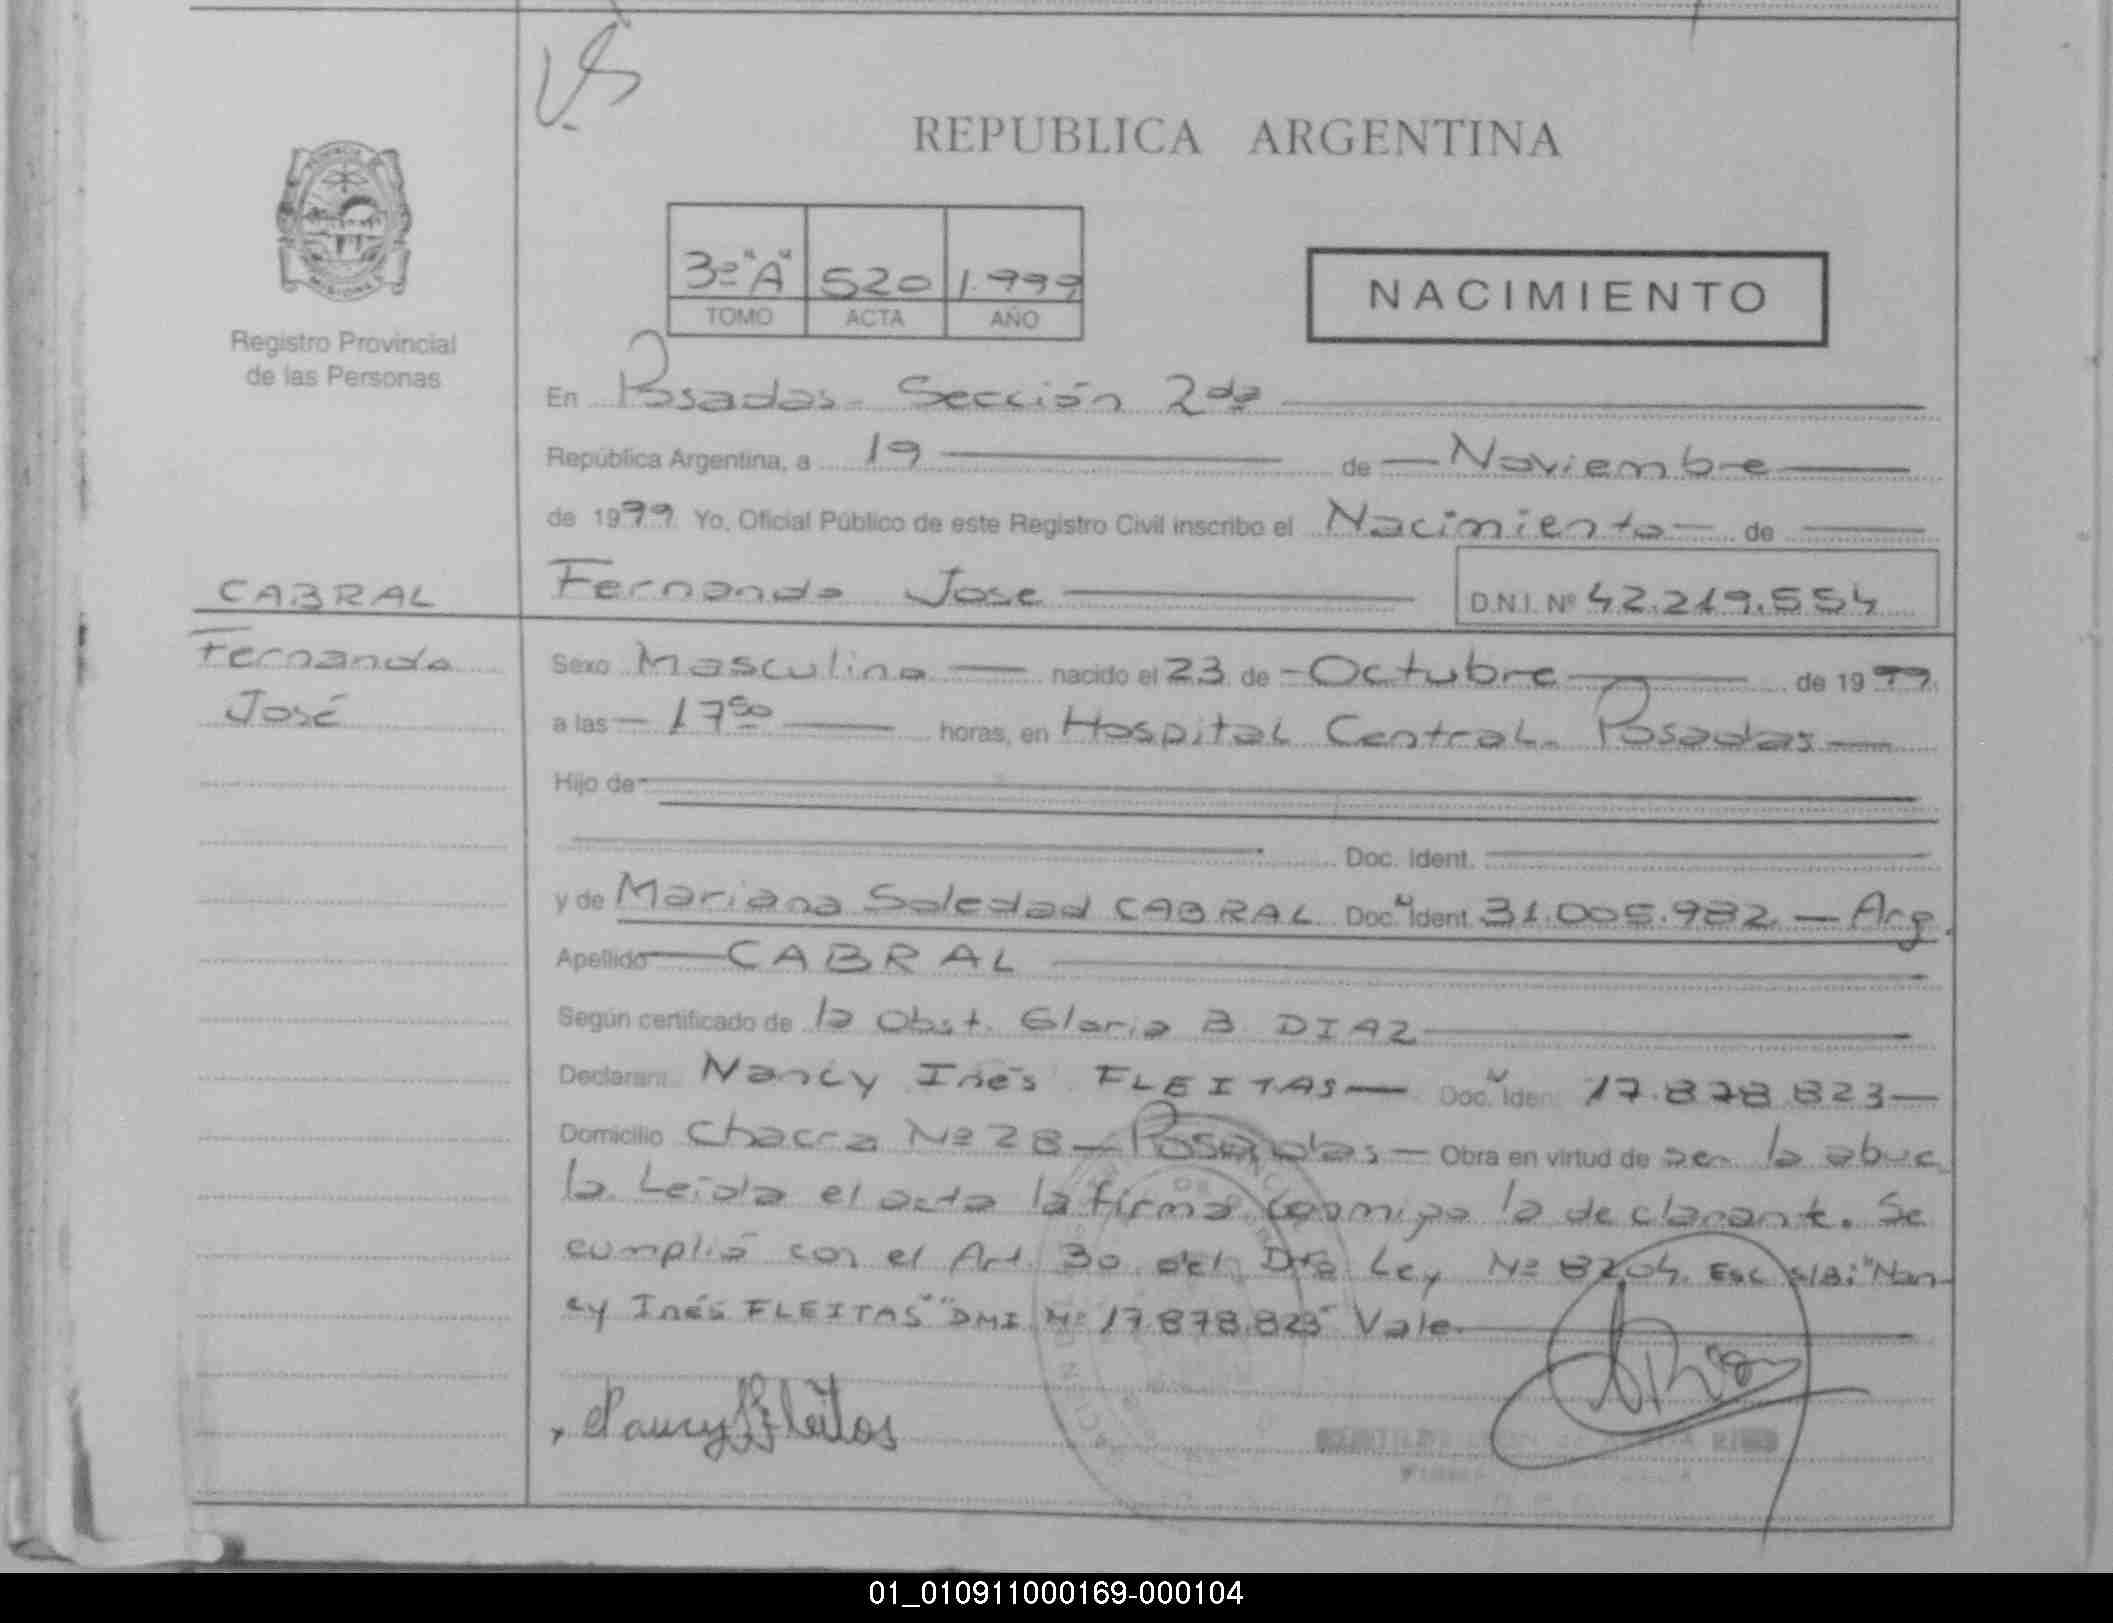 REPUBLICA ARGENTINA
3º "A" 520 1.999
TOMO ACTA AÑO
NACIMIENTO
Registro Provincial
de las Personas
En Posadas - Sección 2da
República Argentina, a 19 de Noviembre
de 1999 Yo, Oficial Público de este Registro Civil inscribo el Nacimiento de
CABRAL
Fernando Jose D.N.I. Nº 42.219.554
Fernando
José
Sexo Masculino nacido el 23 de Octubre de 1999
a las 17 50 horas, en Hospital Central. Posadas
Hijo de
Doc. Ident.
y de Mariana Soledad CABRAL Doc. Ident. 31.005.982. Arg.
Apellido CABRAL
Según certificado de la Obst. Gloria B. DIAZ
Declarant Nancy Inés FLEITAS Doc. Iden 17.878.823
Domicilio Chacra Nº 28 - Posadas Obra en virtud de ser la abue
la. Leída el acta la firma conmigo la declarante. Se
cumplió con el Art. 30 del Dto Ley Nº 8204. Esc s/B: "Nan-
cy Inés FLEITAS" "DNI Nº 17.878.823" Vale.
Nancy Fleitas
01_010911000169-000104